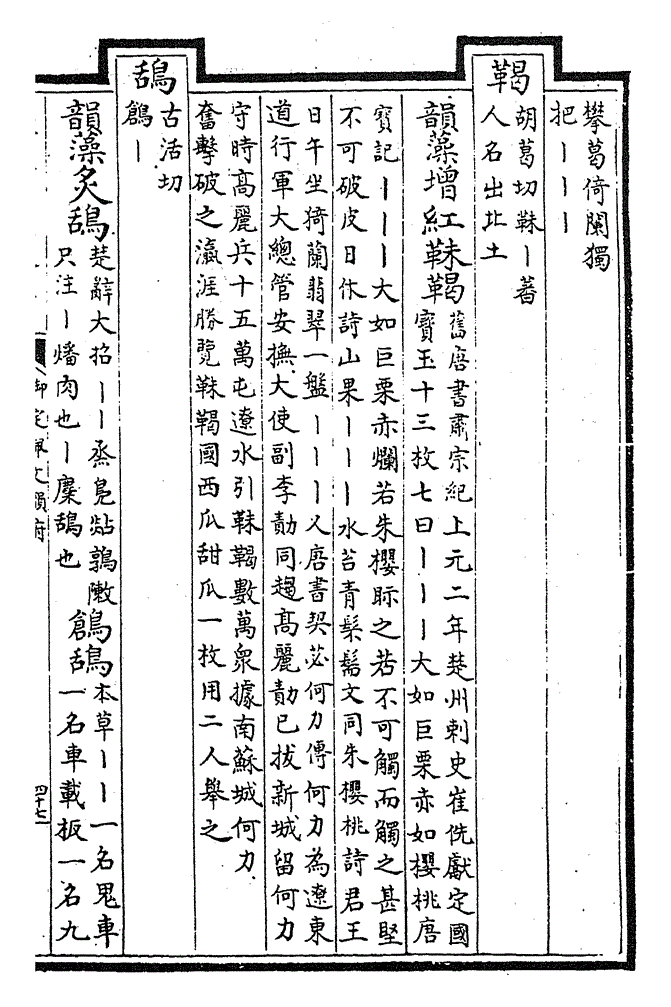 攀葛倚闌獨
把｜｜｜
鞨
胡葛切靺｜蕃
人名出北土
韻藻增紅靺鞨
舊唐書肅宗紀上元二年楚州刺史崔侁獻定國
寳玉十三枚七曰｜｜｜大如巨栗赤如櫻桃唐
寳記｜｜｜大如巨栗赤爛若朱櫻眎之若不可觸而觸之甚堅
不可破皮日休詩山果｜｜｜水苔青髮鬙文同朱櫻桃詩君王
日午坐猗蘭翡翠一盤｜｜｜又唐書契苾何力傳何力為遼東
道行軍大總管安撫大使副李勣同趨髙麗勣已拔新城留何力
守時髙麗兵十五萬屯遼水引靺鞨數萬衆據南蘇城何力
奮擊破之瀛涯勝覽靺鞨國西瓜甜瓜一枚用二人舉之
鴰
古活切
鶬｜
韻藻炙鴰
楚辭大招｜｜烝鳬煔鶉敶
只注｜燔肉也｜麋鴰也
鶬鴰
本草｜｜一名鬼車
一名車載板一名九
御定佩文韻府
四十七